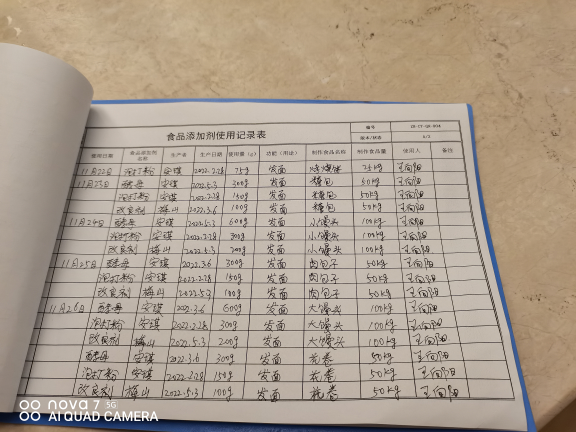 食品添加剂使用记录表
编号
版本/修改 A/0
使用日期 食品添加剂名称 生产者 生产日期 使用量(g) 功能(用途) 制作食品名称 制作食品量 使用人 备注
11月22日 泡打粉 安琪 2022.2.28 75g 发面 25kg 王向阳
11月23日 酵母 安琪 2022.5.3 300g 发面 糖包 50kg 王向阳
泡打粉 安琪 2022.2.28 150g 发面 糖包 50kg 王向阳
改良剂 梅山 2022.3.6 100g 发面 糖包 50kg 王向阳
11月24日 酵母 安琪 2022.5.3 600g 发面 小馒头 100kg 王向阳
泡打粉 安琪 2022.2.28 300g 发面 小馒头 100kg 王向阳
改良剂 梅山 2022.5.3 200g 发面 小馒头 100kg 王向阳
11月25日 酵母 安琪 2022.3.6 300g 发面 肉包子 50kg 王向阳
泡打粉 安琪 2022.2.28 150g 发面 肉包子 50kg 王向阳
改良剂 梅山 2022.5.3 100g 发面 肉包子 50kg 王向阳
11月26日 酵母 安琪 2022.3.6 600g 发面 大馒头 100kg 王向阳
泡打粉 安琪 2022.2.28 300g 发面 大馒头 100kg 王向阳
改良剂 梅山 2022.5.3 200g 发面 大馒头 100kg 王向阳
酵母 安琪 2022.3.6 300g 发面 花卷 50kg 王向阳
泡打粉 安琪 2022.2.28 150g 发面 花卷 50kg 王向阳
改良剂 梅山 2022.5.3 100g 发面 花卷 50kg 王向阳
nova 7 5G
AI QUAD CAMERA